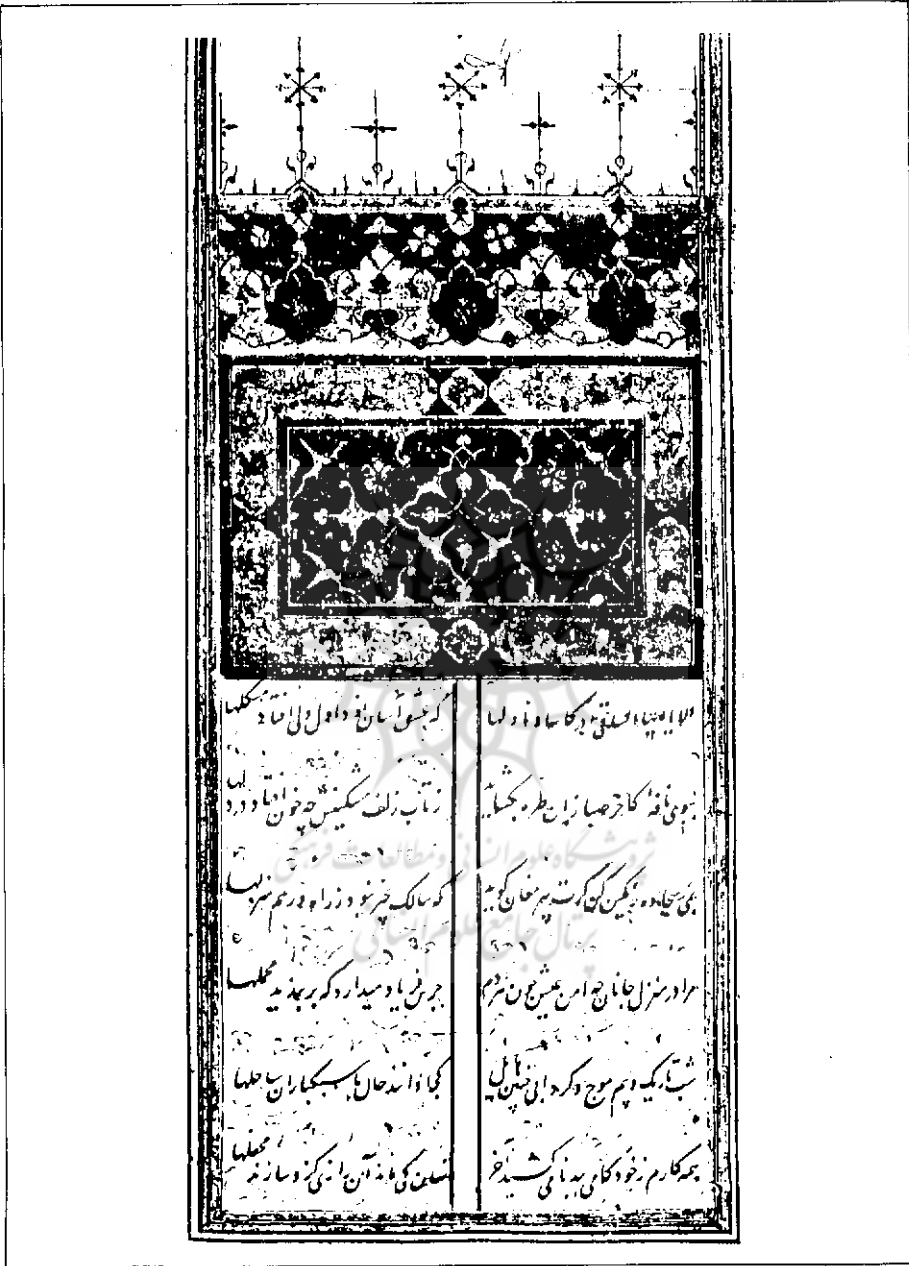 الا یا ایها الساقی ادر کاسا و ناولها که عشق آسان نمود اول ولی افتاد مشکلها
ببوی نافهٔ کاخر صبا زان طره بکشاید ز تاب زلف مشکینش چه خون افتاد در دلها
بمی سجاده رنکین کن کرت پیر مغان کوید که سالک بی خبر نبود ز راه و رسم منزلها
مرا در منزل جانان چه امن عیش چون هر دم جرس فریاد میدارد که بربندید محملها
شب تاریک و بیم موج و کردابی چنین هایل کجا دانند حال ما سبکباران ساحلها
همه کارم ز خود کامی به بدنامی کشید آخر نهان کی ماند آن رازی کزو سازند محفلها
پژوهشگاه علوم انسانی و مطالعات فرهنگی
پرتال جامع علوم انسانی